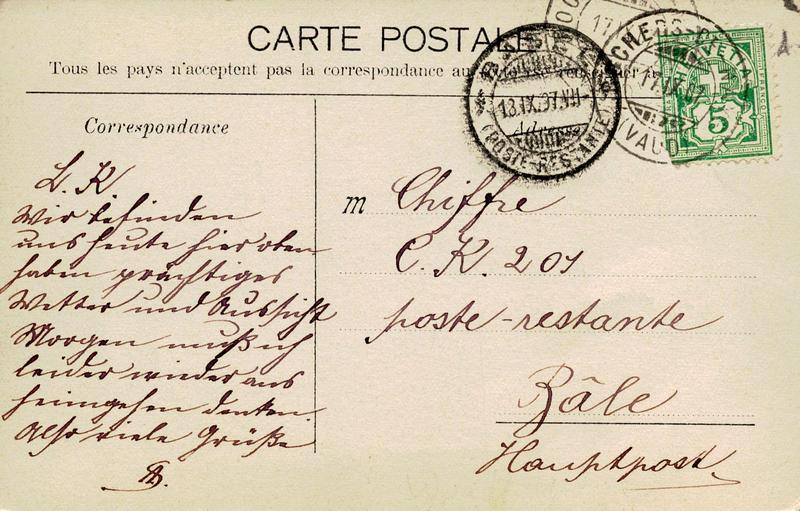 CARTE POSTALE
Tous les pays n'acceptent pas la correspondance au
Correspondance
L. K.
Wir befinden
uns heute hier oben
haben prächtiges
Wetter und Aussicht
Morgen muß ich
leider wieder ans
heimgehen denken.
Also viele Grüße
m Chiffre
C. K. 201
poste-restante
Bâle
Hauptpost
13.IX.07.VII
Adresse
(POSTE-RESTANTE)
(VAUD)
HELVETIA
5